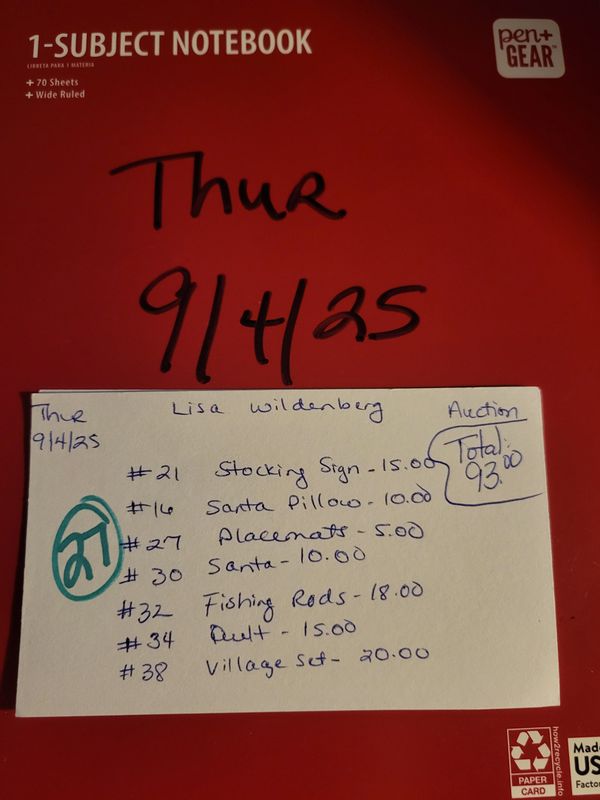 1-SUBJECT NOTEBOOK
LIBRETA PARA 1 MATERIA
+ 70 Sheets
+ Wide Ruled
pen+
GEAR™
Thur
9/4/25
Thur
9/4/25
Lisa Wildenberg
Auction
Total:
93.00
#21 Stocking Sign - 15.00
#16 Santa Pillow - 10.00
#27 Placemats - 5.00
#30 Santa - 10.00
#32 Fishing Rods - 18.00
#34 Quilt - 15.00
#38 Village Set - 20.00
PAPER
CARD
how2recycle.info
Made
US
Factor